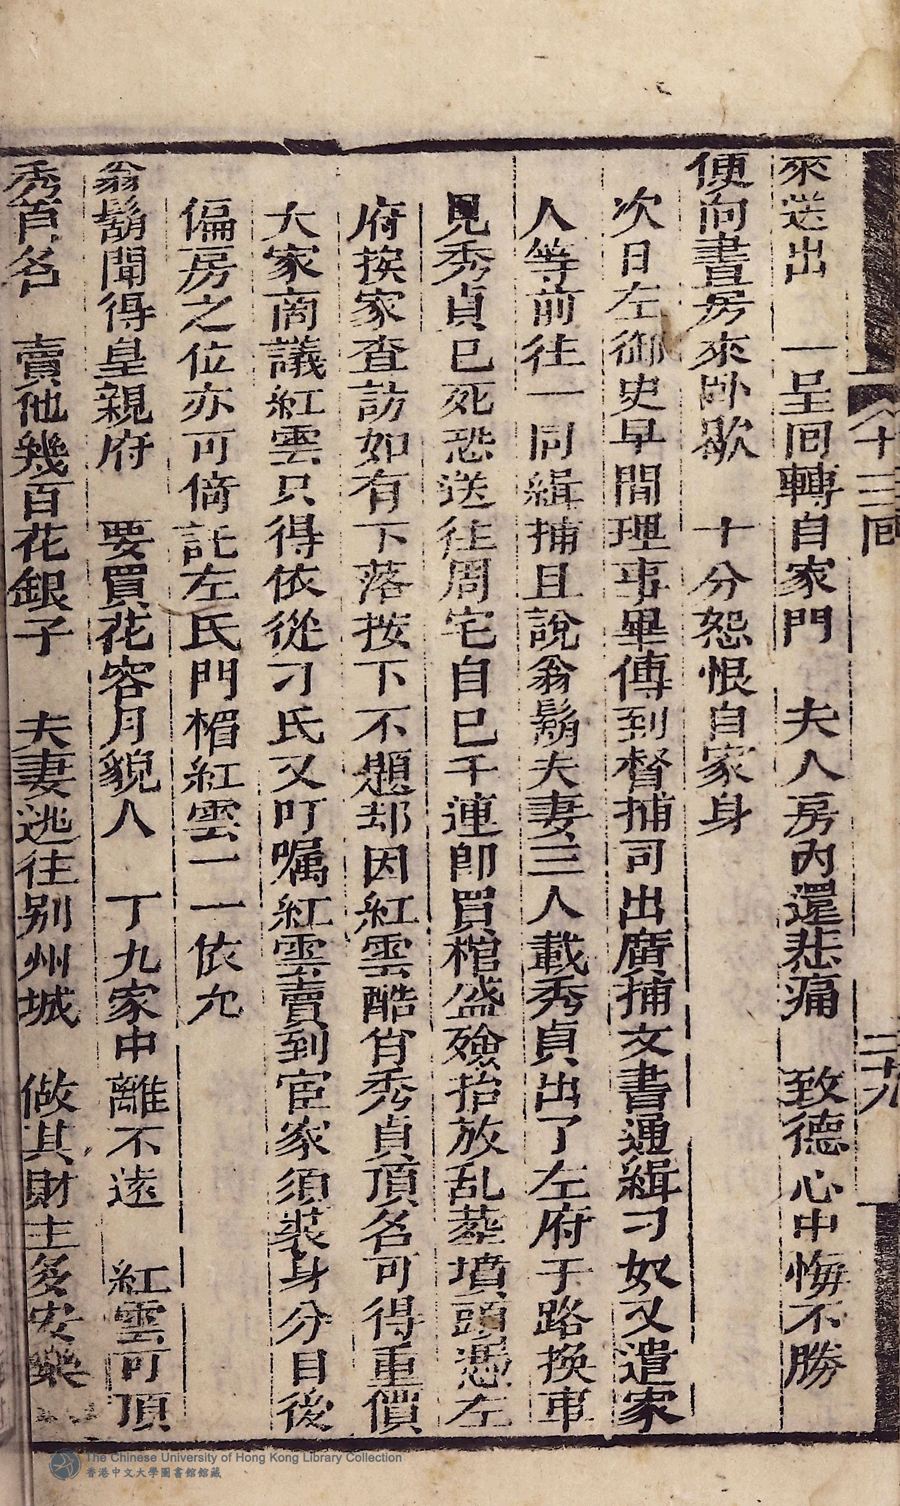 十三回
二十九
來送出 一呈回轉自家門 夫人房內還悲痛 致德心中悔不勝
便向書房來卧歇 十分怨恨自家身
次日左御史早間理事畢傳到督捕司出廣捕文書通緝刁奴又遣家
人等前往一同緝捕且說翁鬍夫妻三人載秀貞出了左府于路換車
見秀貞已死恐送往周宅自己干連即買棺盛殮抬放乱塟墳頭憑左
府挨家查訪如有下落按下不題却因紅雲酷肖秀貞頂名可得重價
大家商議紅雲只得依從刁氏又叮嘱紅雲賣到宦家須裝身分日後
偏房之位亦可倚託左氏門楣紅雲一一依允
翁鬍聞得皇親府 要買花容月貌人 丁九家中離不遠 紅雲可頂
秀貞名 賣他幾百花銀子 夫妻逃往别州城 做其財主多安樂
The Chinese University of Hong Kong Library Collection
香港中文大學圖書館館藏